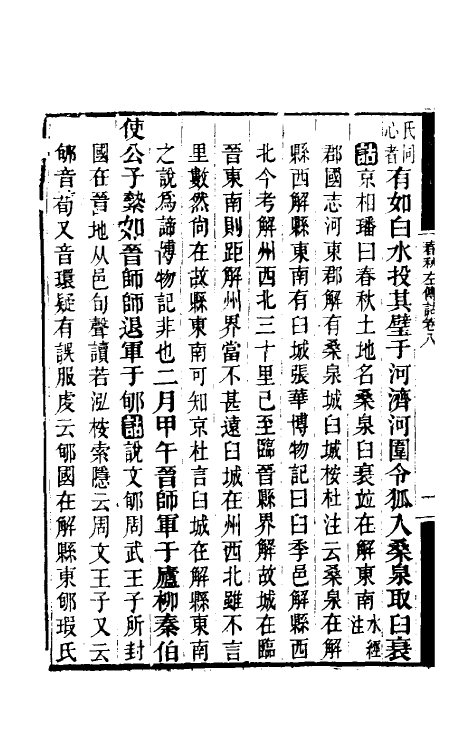 氏同心者有如白水投其璧于河濟河圍令狐入桑泉取臼衰
詁京相璠曰春秋土地名桑泉臼衰竝在解東南水經注
郡國志河東郡解有桑泉城臼城桉杜注云桑泉在解
縣西解縣東南有臼城張華博物記曰臼季邑解縣西
北今考解州西北三十里已至臨晉縣界解故城在臨
晉東南則距解州界當不甚遠臼城在州西北雖不言
里數然尙在故縣東南可知京杜言臼城在解縣東南
之說爲諦博物記非也二月甲午晉師軍于廬柳秦伯
使公子縶如晉師師退軍于郇詁說文郇周武王子所封
國在晉地从邑旬聲讀若泓桉索隱云周文王子又云
郇音荀又音環疑有誤服虔云郇國在解縣東郇瑕氏
春秋左傳詁卷八